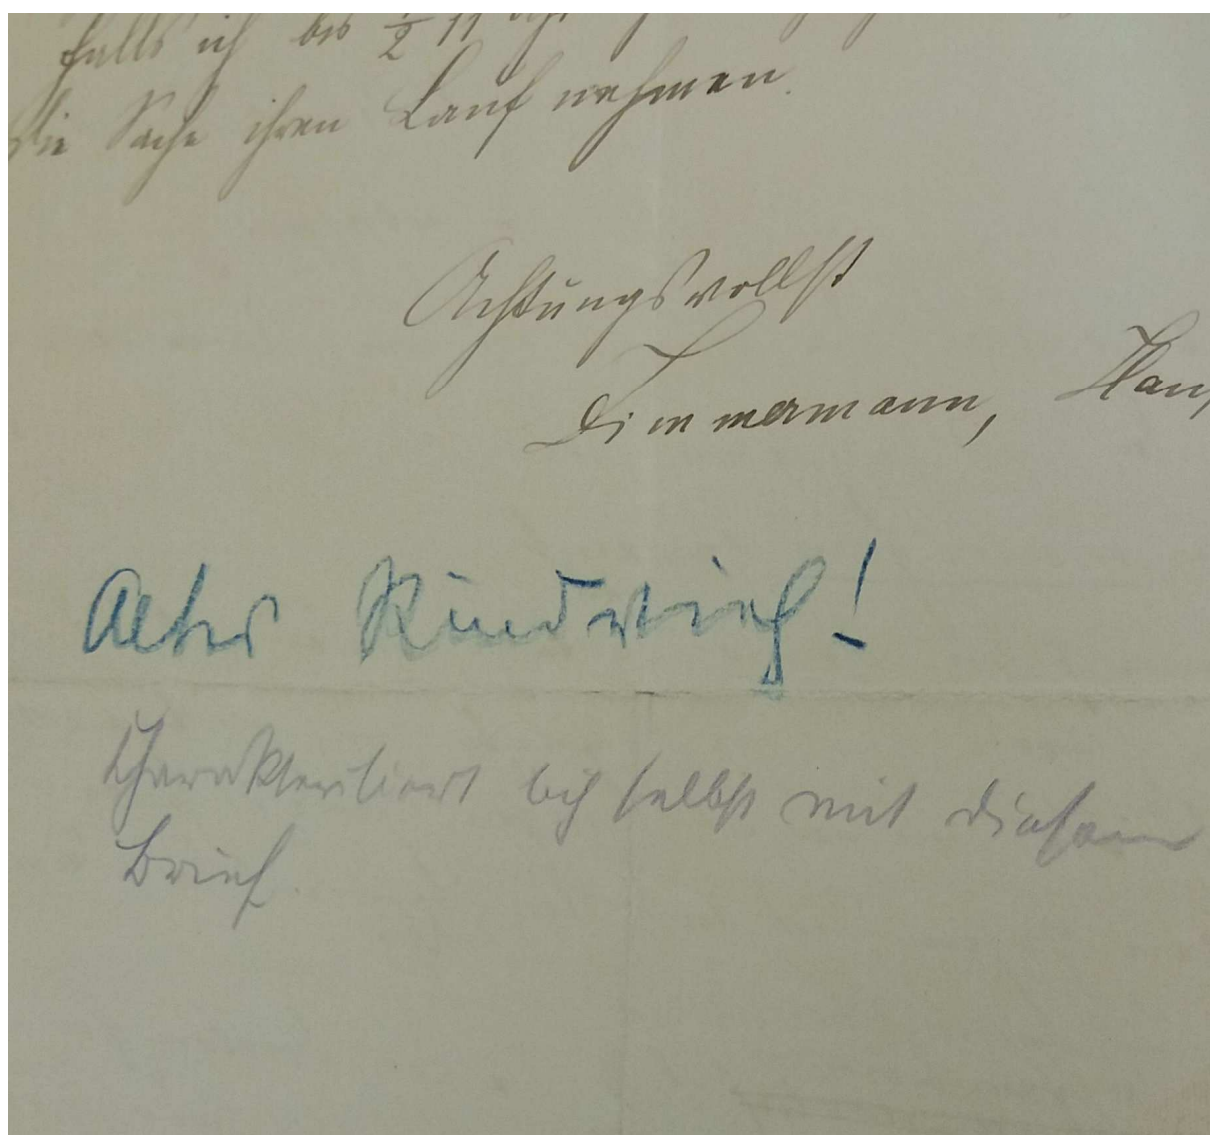 falls ich bis ½ 11 Uhr
die Sache ihren Lauf nehmen.
Achtungsvollst
Zimmermann,
Altes Rindvieh!
Charakterisiert sich selbst mit diesem
Brief.